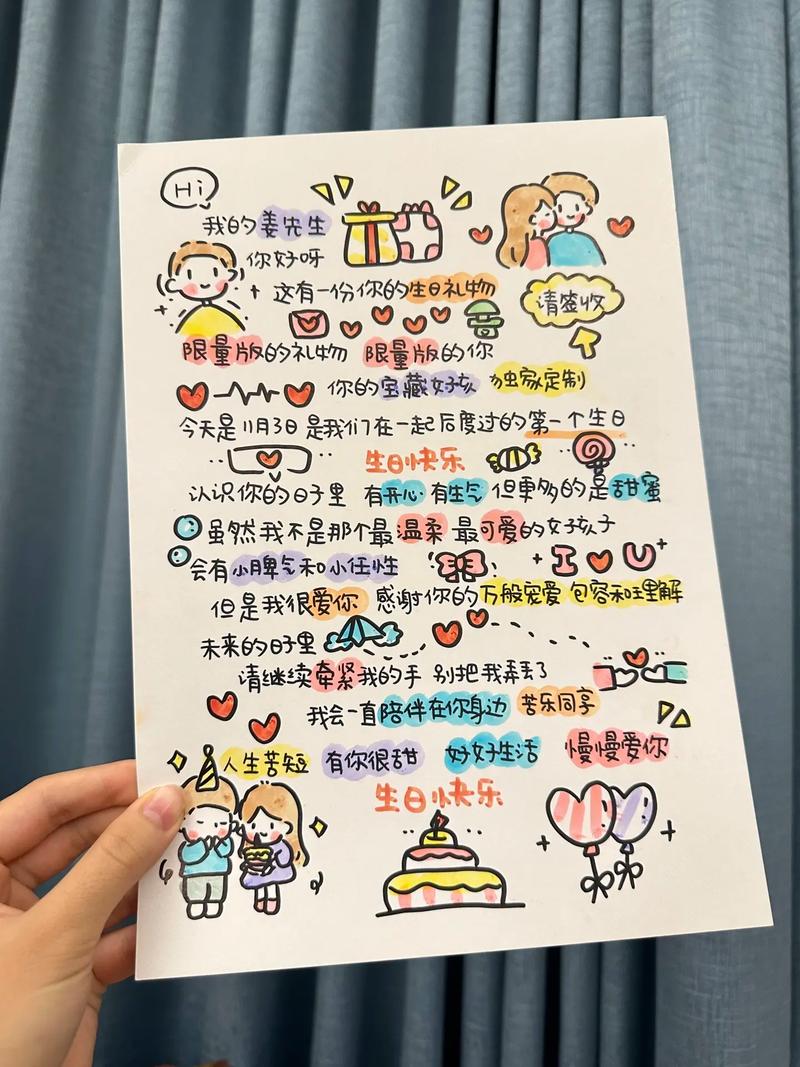 Hi
我的姜先生
你好呀
这有一份你的生日礼物
请签收
限量版的礼物 限量版的你
你的宝藏女孩 独家定制
今天是11月3日 是我们在一起后度过的第一个生日
生日快乐
认识你的日子里 有开心 有生气 但更多的是甜蜜
虽然我不是那个最温柔 最可爱的女孩子
会有小脾气和小任性
I U
但是我很爱你 感谢你的万般宠爱 包容和理解
未来的日子里
请继续牵紧我的手 别把我弄丢了
我会一直陪伴在你身边 苦乐同享
人生苦短 有你很甜 好好生活 慢慢爱你
生日快乐